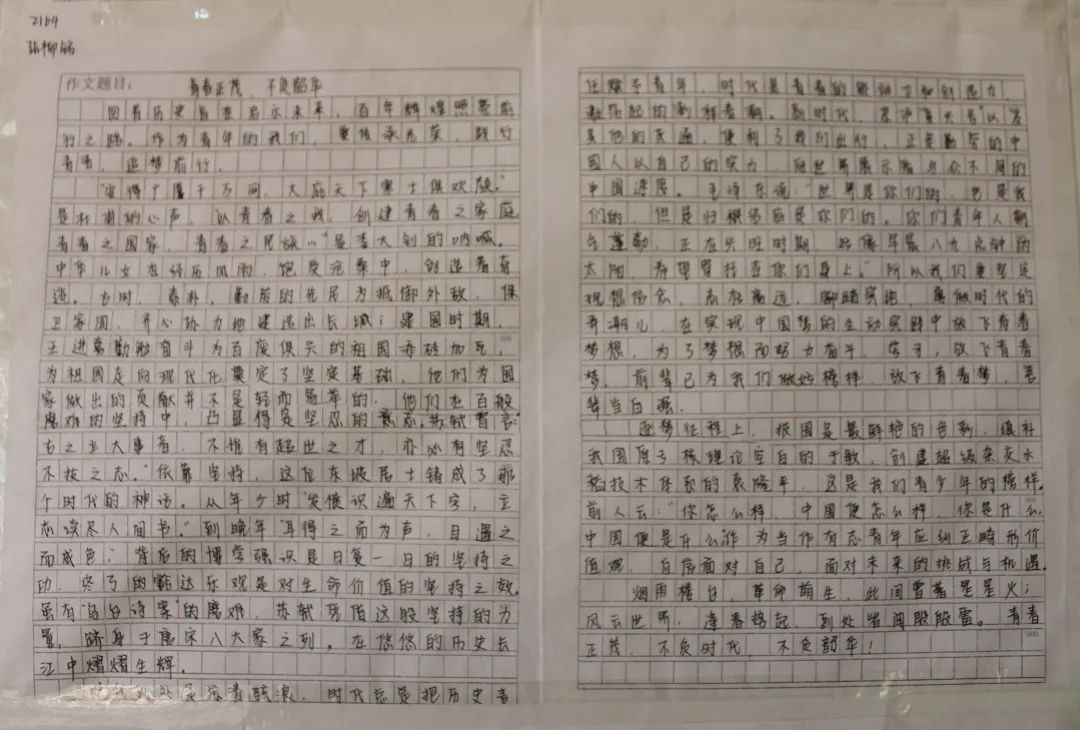 2169
作文题目：
青春正茂，不负韶华
回首历史旨在启示未来，百年辉煌照亮前
行之路。作为青年的我们，更传承光荣，践行
青春，追梦前行。
"安得广厦千万间，大庇天下寒士俱欢颜。"
是杜甫的心声，"以青春之我，创建青春之家庭
青春之国家，青春之民族…"是李大钊的呐喊。
中华儿女在经历风雨，饱受沧桑中，创造着奇
迹。古时，素朴、勤劳的先民为抵御外敌，保
卫家园，齐心协力地建造出长城；建国时期，
王进喜勤勉奋斗为百废俱兴的祖国添砖加瓦，
为祖国走向现代化奠定了坚定基础，他们为国
家做出的贡献并不是轻而易举的，他们在百般
磨难的坚持中，凸显得是坚忍的意志。苏轼曾言：
古之立大事者，不惟有超世之才，亦必有坚忍
不拔之志。"依靠坚持，这位东坡居士铸成了那
个时代的神话。从年少时"发愤识遍天下字，立
志读尽人间书。"到晚年"耳得之而为声，目遇之
而成色；"背后的博学强识是日复一日的坚持之
功，突兀的豁达乐观是对生命价值的坚持之效。
虽有"乌台诗案"的磨难，苏轼凭借这股坚持的力
量，跻身于唐宋八大家之列。在悠悠的历史长
江中熠熠生辉。
时代总是把历史责
任赋予青年，时代是青春的
新时代，
便利了我们出行，正是勤劳的中
国人以自己的实力，向世界展示着与众不同的
中国速度。毛泽东说："世界是你们的，也是我
们的，但是归根结底是你们的。你们青年人朝
气蓬勃，正在兴旺时期，好像早晨八九点钟的
太阳，希望寄托在你们身上。"所以我们要坚定
理想信念，志存高远，脚踏实地，勇做时代的
弄潮儿，在实现中国梦的生动实践中放飞青春
梦想，为了梦想而努力奋斗。学子，放飞青春
梦，前辈已为我们做好榜样，放飞青春梦，吾
辈当自强。
逐梦征程上，报国是最鲜艳的色彩，填补
我国原子核理论空白的于敏，创建超级杂交水
稻技术体系的袁隆平，这是我们青少年的榜样。
前人云："你怎么样，中国便怎么样，你是什么，
中国便是什么"作为当代有志青年应纠正畸形价
值观，自信面对自己，面对未来的挑战与机遇。
烟雨楼台，革命萌生，此间曾著星星火；
风云世界，逢春蛰起，到处皆闻殷殷雷。青春
正茂，不负时代，不负韶华！